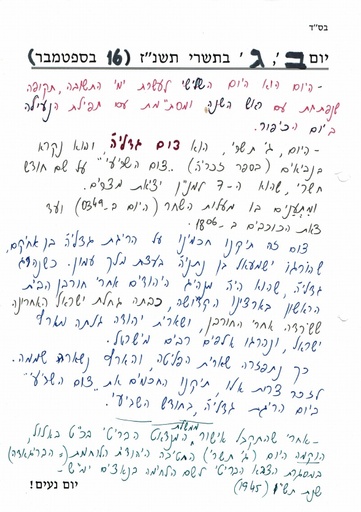 בס"ד
יום ב', ג' בתשרי תשנ"ז (16 בספטמבר)
- היום הוא היום השלישי לעשרת ימי התשובה, תקופה
שנפתחת עם ראש השנה ומסתיימת עם תפילת הנעילה
ביום הכיפור.
- היום, ג' תשרי, הוא צום גדליה, והוא נקרא
בנביאים (בספר זכריה) "צום השביעי" על שם חודש
תשרי, שהוא ה-7 למניין יציאת מצרים.
ומתענים בו מעלות השחר (היום ב-0349) ועד
צאת הכוכבים ב-1806.
צום זה תיקנו חכמינו על הריגת גדליה בן אחיקם,
שהורגו ישמעאל בן נתניה בעצת מלך עמון. כשנהרג
גדליה, שהוא היה מנהיג היהודים אחרי חורבן הבית
הראשון בארצינו הקדושה, כבתה גחלת ישראל האחרונה
ששרדה אחרי החורבן, ושארית יהודה גלתה מארץ
ישראל, ונהרגו אלפים רבים מישראל.
כך נתפזרה שארית הפליטה, והארץ נשארה שממה.
לזכר צרות אלו, תיקנו החכמים את "צום השביעי"
ביום הריגת גדליה, בחודש השביעי.
- אחרי שהתקבל אישור ממשלת המנדאט הבריטי בכ"ט באלול,
הוקמה היום (ג' תשרי) החטיבה היהודית הלוחמת (=הבריגאדה)
במסגרת הצבא הבריטי לשם הלחימה בנאצים ימ"ש -
שנת תש"ו (1945)
יום נעים!